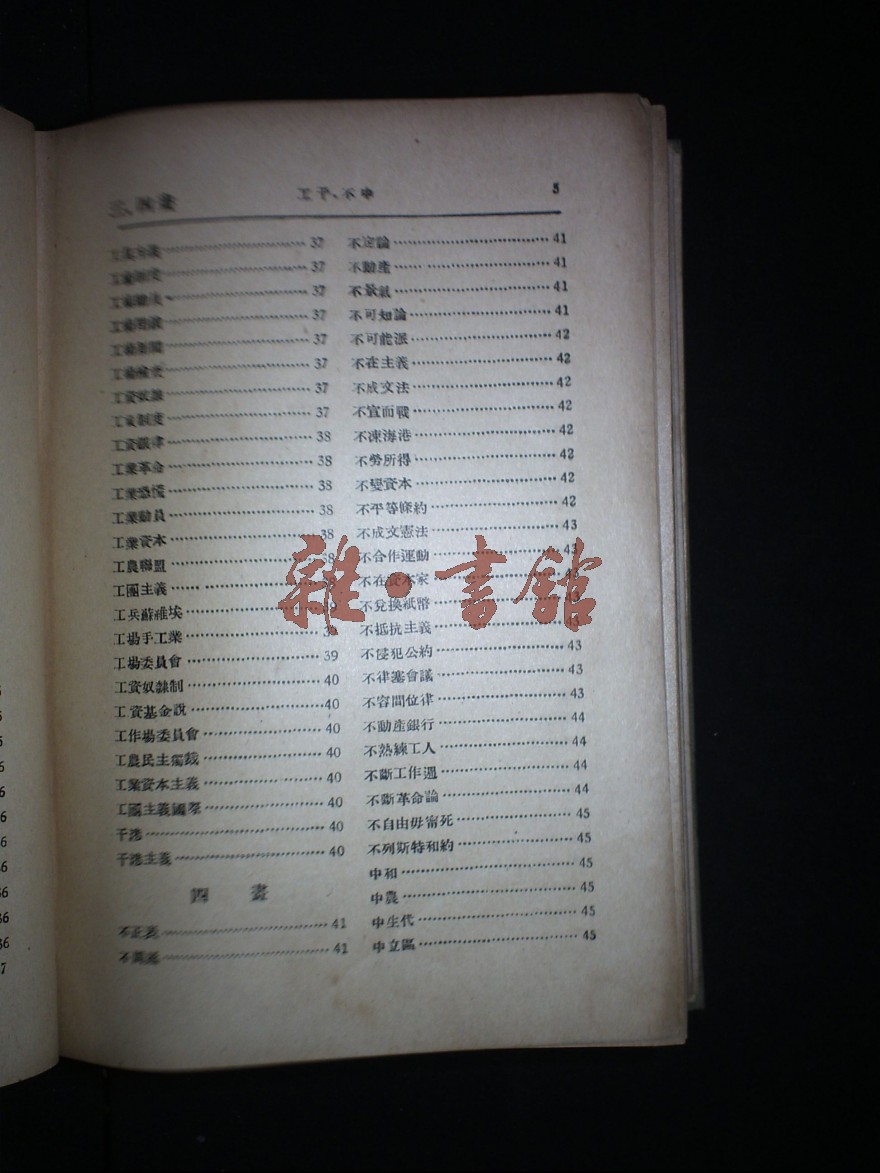 工干、不中 5
37
37
37
37
37
37
工資奴隸 37
工資制度 37
工資鐵律 38
工業革命 38
工業恐慌 38
工業動員 38
工業資本 38
工農聯盟 38
工團主義 38
工兵蘇維埃 39
工場手工業 39
工場委員會 39
工資奴隸制 40
工資基金說 40
工作場委員會 40
工農民主獨裁 40
工業資本主義 40
工團主義國際 40
40
40
四畫
41
41
不定論 41
不動產 41
不景氣 41
不可知論 41
不可能派 42
不在主義 42
不成文法 42
不宣而戰 42
不凍海港 42
不勞所得 42
不變資本 42
不平等條約 42
不成文憲法 43
不合作運動 43
不在資本家
不兌換紙幣
不抵抗主義
不侵犯公約 43
不律塞會議 43
不容間位律 43
不動產銀行 44
不熟練工人 44
不斷工作週 44
不斷革命論 44
不自由毋甯死 45
不列斯特和約 45
中和 45
中農 45
中生代 45
中立區 45
雜·書館